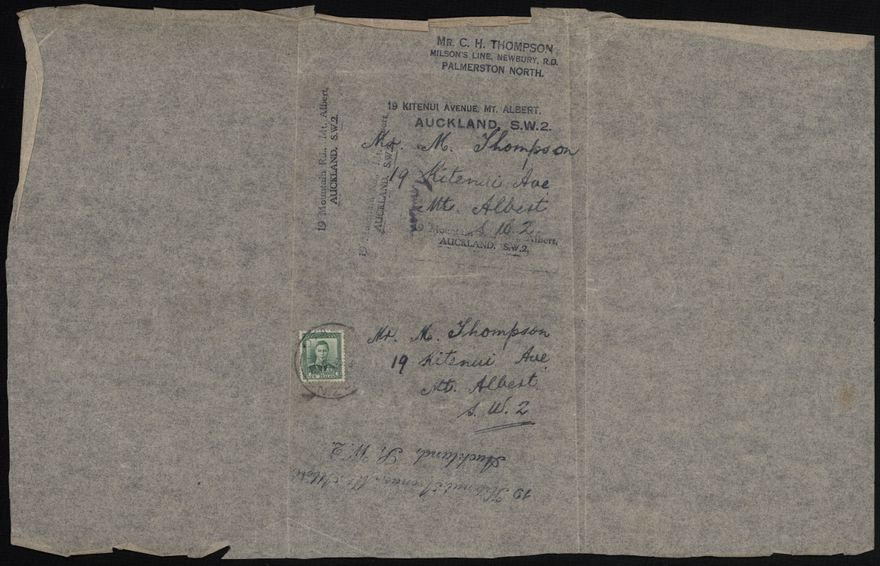 MR. C. H. THOMPSON
MILSON'S LINE, NEWBURY, R.D.
PALMERSTON NORTH.
19 KITENUI AVENUE, MT. ALBERT.
AUCKLAND, S.W.2.
Mr. M. Thompson
19 Kitenui Ave
Mt. Albert
S. W. 2.
19 Mountain Albert,
AUCKLAND, S.W.2.
19 Mountain Rd., Mt. Albert,
AUCKLAND, S.W.2.
AUCKLAND, S.W.2.
Mr. M. Thompson
19 Kitenui Ave
Mt. Albert
S. W. 2
19 Kitenui Avenue, Mt.
Auckland, S. W. 2.